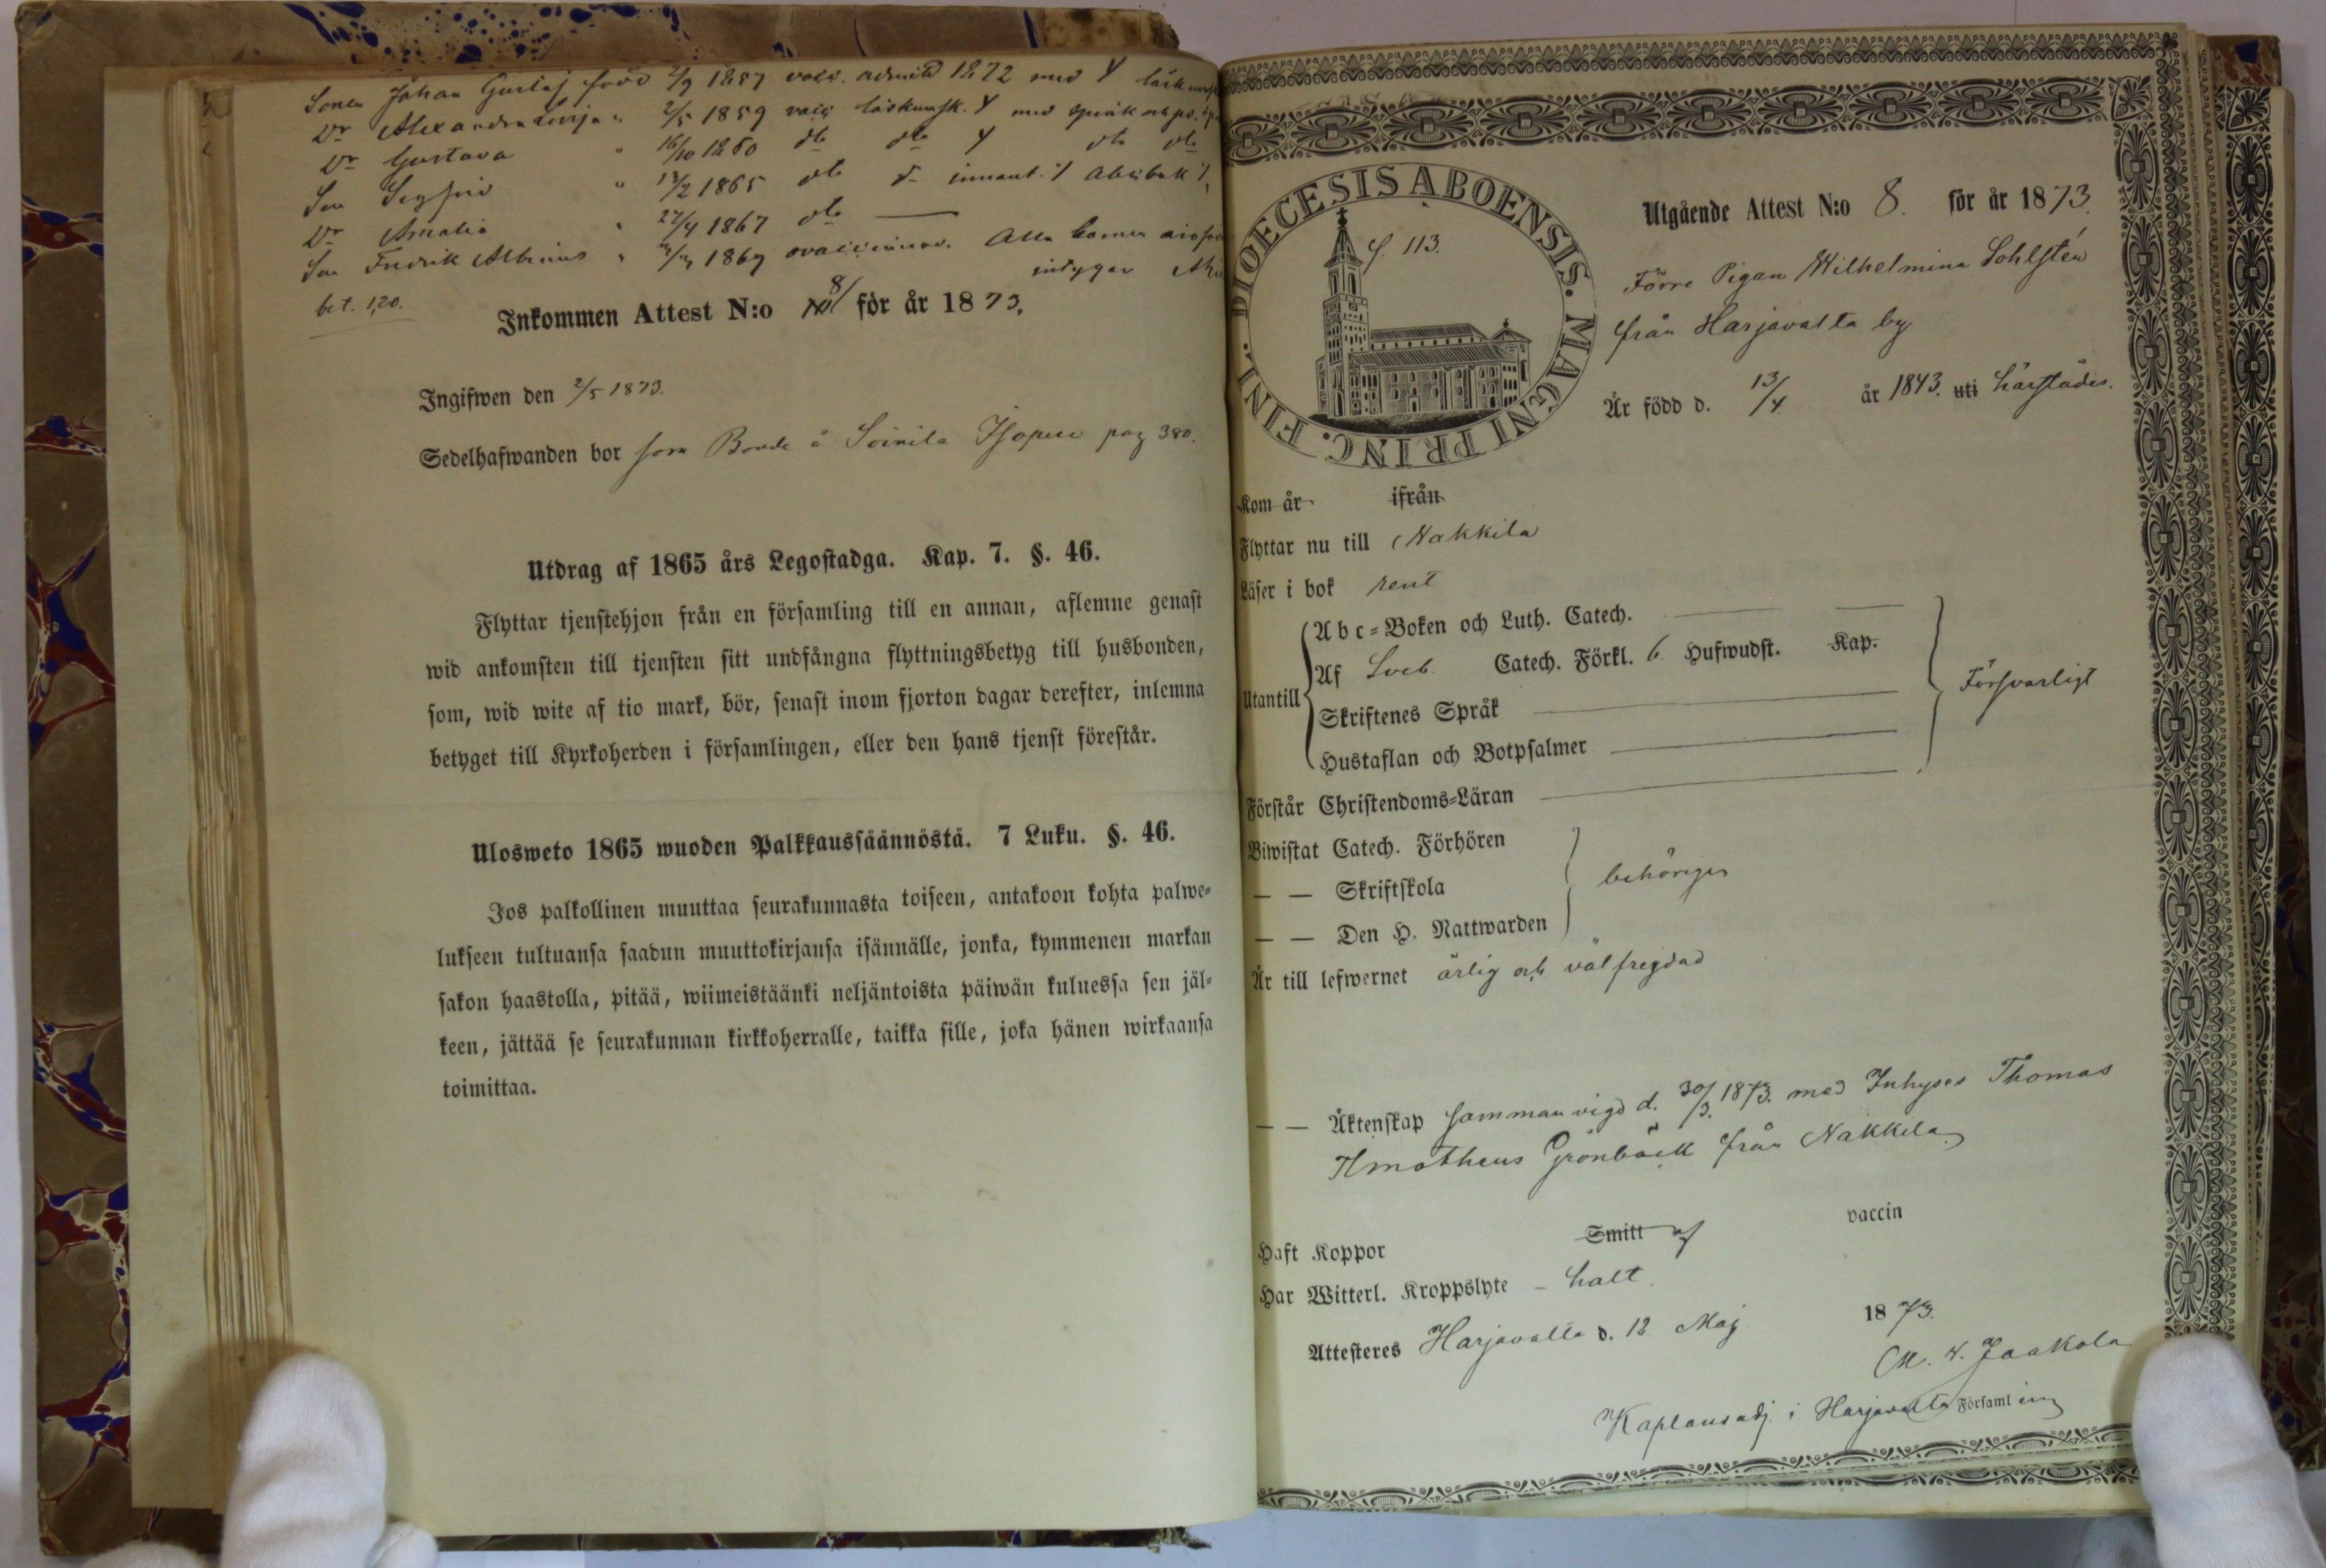 Sonen Johan Gustaf född 2/9 1857 vacc. admitt 1872 med Y läskunsk
Dr Alexandra Lovisa " 2/5 1859 vacc läskunsk. Y med språk och ps.
Dr Gustava " 16/10 1860 do do Y do do
Son Segfrid " 13/2 1865 do d- innant. Y Abcbok
Dr Amalia " 27/4 1867 do —
Son Fredrik Albinus " 1869 ovaccinerad. Alla komma
intygar
bet. 1,20.
Inkommen Attest N:o 8/ för år 1873.
Ingifwen den 2/5 1873.
Sedelhafwanden bor som Bonde å Soinila Isopere pag 380.
Utdrag af 1865 års Legostadga. Kap. 7. §. 46.
Flyttar tjenstehjon från en församling till en annan, aflemne genast
wid ankomsten till tjensten sitt undfångna flyttningsbetyg till husbonden,
som, wid wite af tio mark, bör, senast inom fjorton dagar derefter, inlemna
betyget till Kyrkoherden i församlingen, eller den hans tjenst förestår.
Ulosweto 1865 wuoden Palkkaussäännöstä. 7 Luku. §. 46.
Jos palkollinen muuttaa seurakunnasta toiseen, antakoon kohta palwe-
lukseen tultuansa saadun muuttokirjansa isännälle, jonka, kymmenen markan
sakon haastolla, pitää, wiimeistäänki neljäntoista päiwän kuluessa sen jäl-
keen, jättää se seurakunnan kirkkoherralle, taikka sille, joka hänen wirkaansa
toimittaa.
DIOECESIS ABOENSIS. MAGNI PRINC. FINL.
f. 113.
Utgående Attest N:o 8. för år 1873.
Förre Pigan Wilhelmina Sohlstén
från Harjavalta by
Är född d. 13/4. år 1843. uti härstädes.
Kom år ifrån
Flyttar nu till Nakkila
Läser i bok rent
Utantill
Abc-Boken och Luth. Catech.
Af Sveb. Catech. Förkl. 6. Hufwudst. Kap.
Skriftenes Språk
Hustaflan och Botpsalmer
Försvarligt
Förstår Christendoms-Läran
Biwistat Catech. Förhören
— — Skriftskola
behörigen
— — Den H. Nattwarden
Är till lefwernet ärlig och välfregdad
— — Äktenskap sammanvigd d. 30/3. 1873. med Inhyses Thomas
Timotheus Grönbäck från Nakkila
Haft Koppor Smitt af vaccin
Har Witterl. Kroppslyte – halt.
Attesteres Harjavalta d. 12 Maj 1873.
M. W. Jaakola
Kaplansadj. i Harjavalta Församling